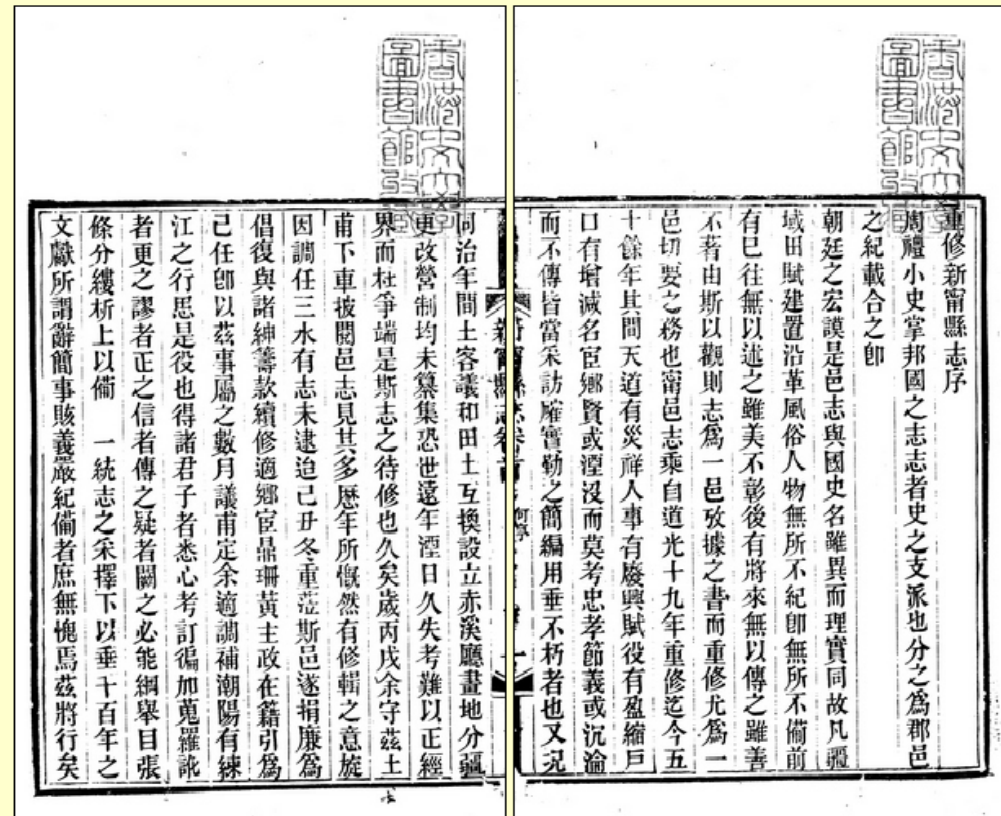 重修新甯縣志序
周禮小史掌邦國之志志者史之支派也分之爲郡邑
之紀載合之卽
朝廷之宏謨是邑志與國史名雖異而理實同故凡疆
域田賦建置沿革風俗人物無所不紀卽無所不備前
有已往無以述之雖美不彰後有將來無以傳之雖善
不著由斯以觀則志爲一邑攷據之書而重修尤爲一
邑切要之務也甯邑志乘自道光十九年重修迄今五
十餘年其間天道有災祥人事有廢興賦役有盈縮戸
口有增減名宦鄉賢或湮沒而莫考忠孝節義或沉淪
而不傳皆當采訪確實勒之簡編用垂不朽者也又况
新甯縣志卷首
同治年間土客議和田土互換設立赤溪廳畫地分疆
更改營制均未纂集恐世遠年湮日久失考難以正經
界而杜爭端是斯志之待修也久矣歲丙戌余守茲土
甫下車披閱邑志見其多歷年所慨然有修輯之意旋
因調任三水有志未逮迫己丑冬重蒞斯邑遂捐廉爲
倡復與諸紳籌款續修適鄉宦鼎珊黃主政在籍引爲
己任卽以茲事屬之數月議甫定余適調補潮陽有練
江之行思是役也得諸君子者悉心考訂徧加蒐羅訛
者更之謬者正之信者傳之疑者闕之必能綱舉目張
條分縷析上以備　一統志之采擇下以垂千百年之
文獻所謂辭簡事賅義嚴紀備者庶無愧焉茲將行矣
香港中文大學
圖書館
香港中文大學
圖書館